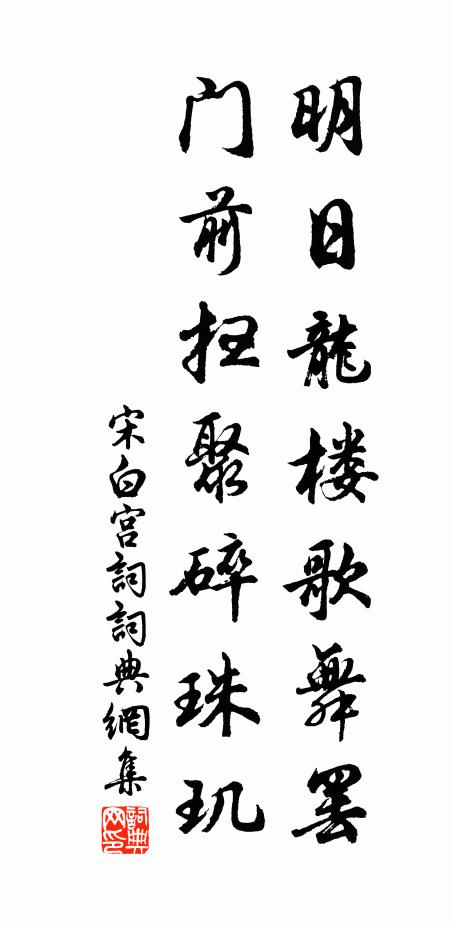 明日龍楼歌舞罢
门前扫聚碎珠玑
宋白宫詞詞典網集
詞典网印